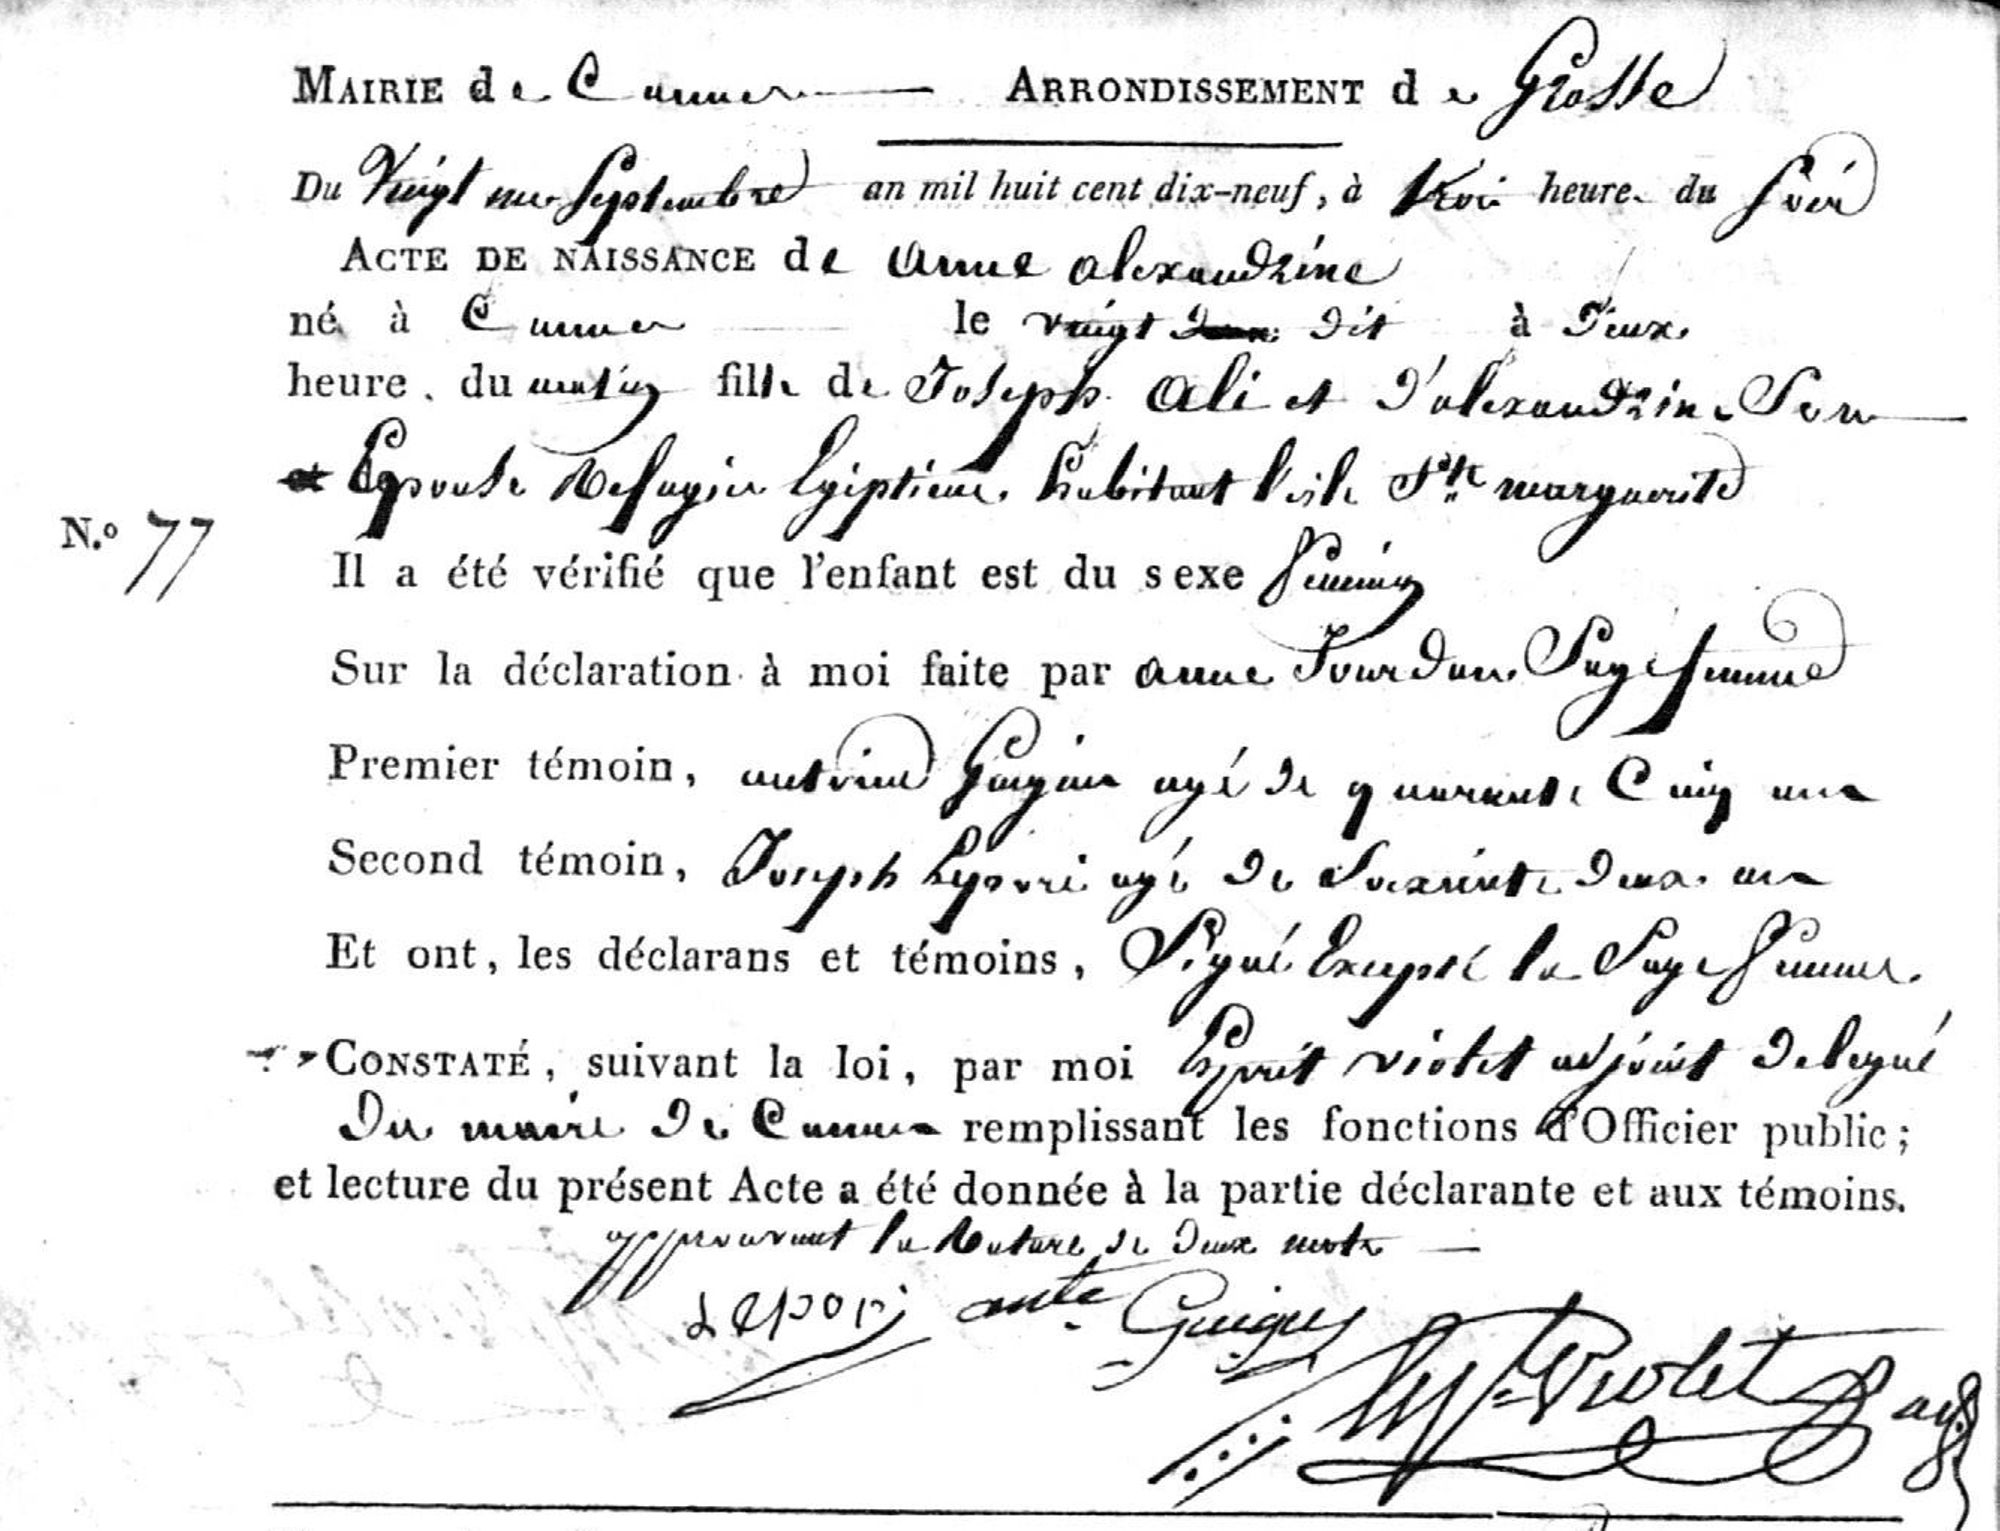 MAIRIE de Cannes ARRONDISSEMENT de Grasse
Du Vingt un Septembre an mil huit cent dix-neuf, à trois heures du Soir
ACTE DE NAISSANCE de anne alexandrine
né à Cannes le vingt dit à Deux
heure. du matin fille de Joseph Ali et d'alexandrine Son
Epouse Refugiés Egiptiens habitant l'isle Ste marguerite
N.º 77
Il a été vérifié que l'enfant est du sexe feminin
Sur la déclaration à moi faite par anne Jourdan Sage femme
Premier témoin, antoine agé de quarante Cinq ans
Second témoin, Joseph Lepori agé de Soixante deux ans
Et ont, les déclarans et témoins, Signé Excepté la Sage femme.
CONSTATÉ, suivant la loi, par moi Esprit violet adjoint Delegué
Du maire De Cannes remplissant les fonctions d'Officier public;
et lecture du présent Acte a été donnée à la partie déclarante et aux témoins.
approuvant la Rature de deux mots
Lepori ante Guigues Violet adj.